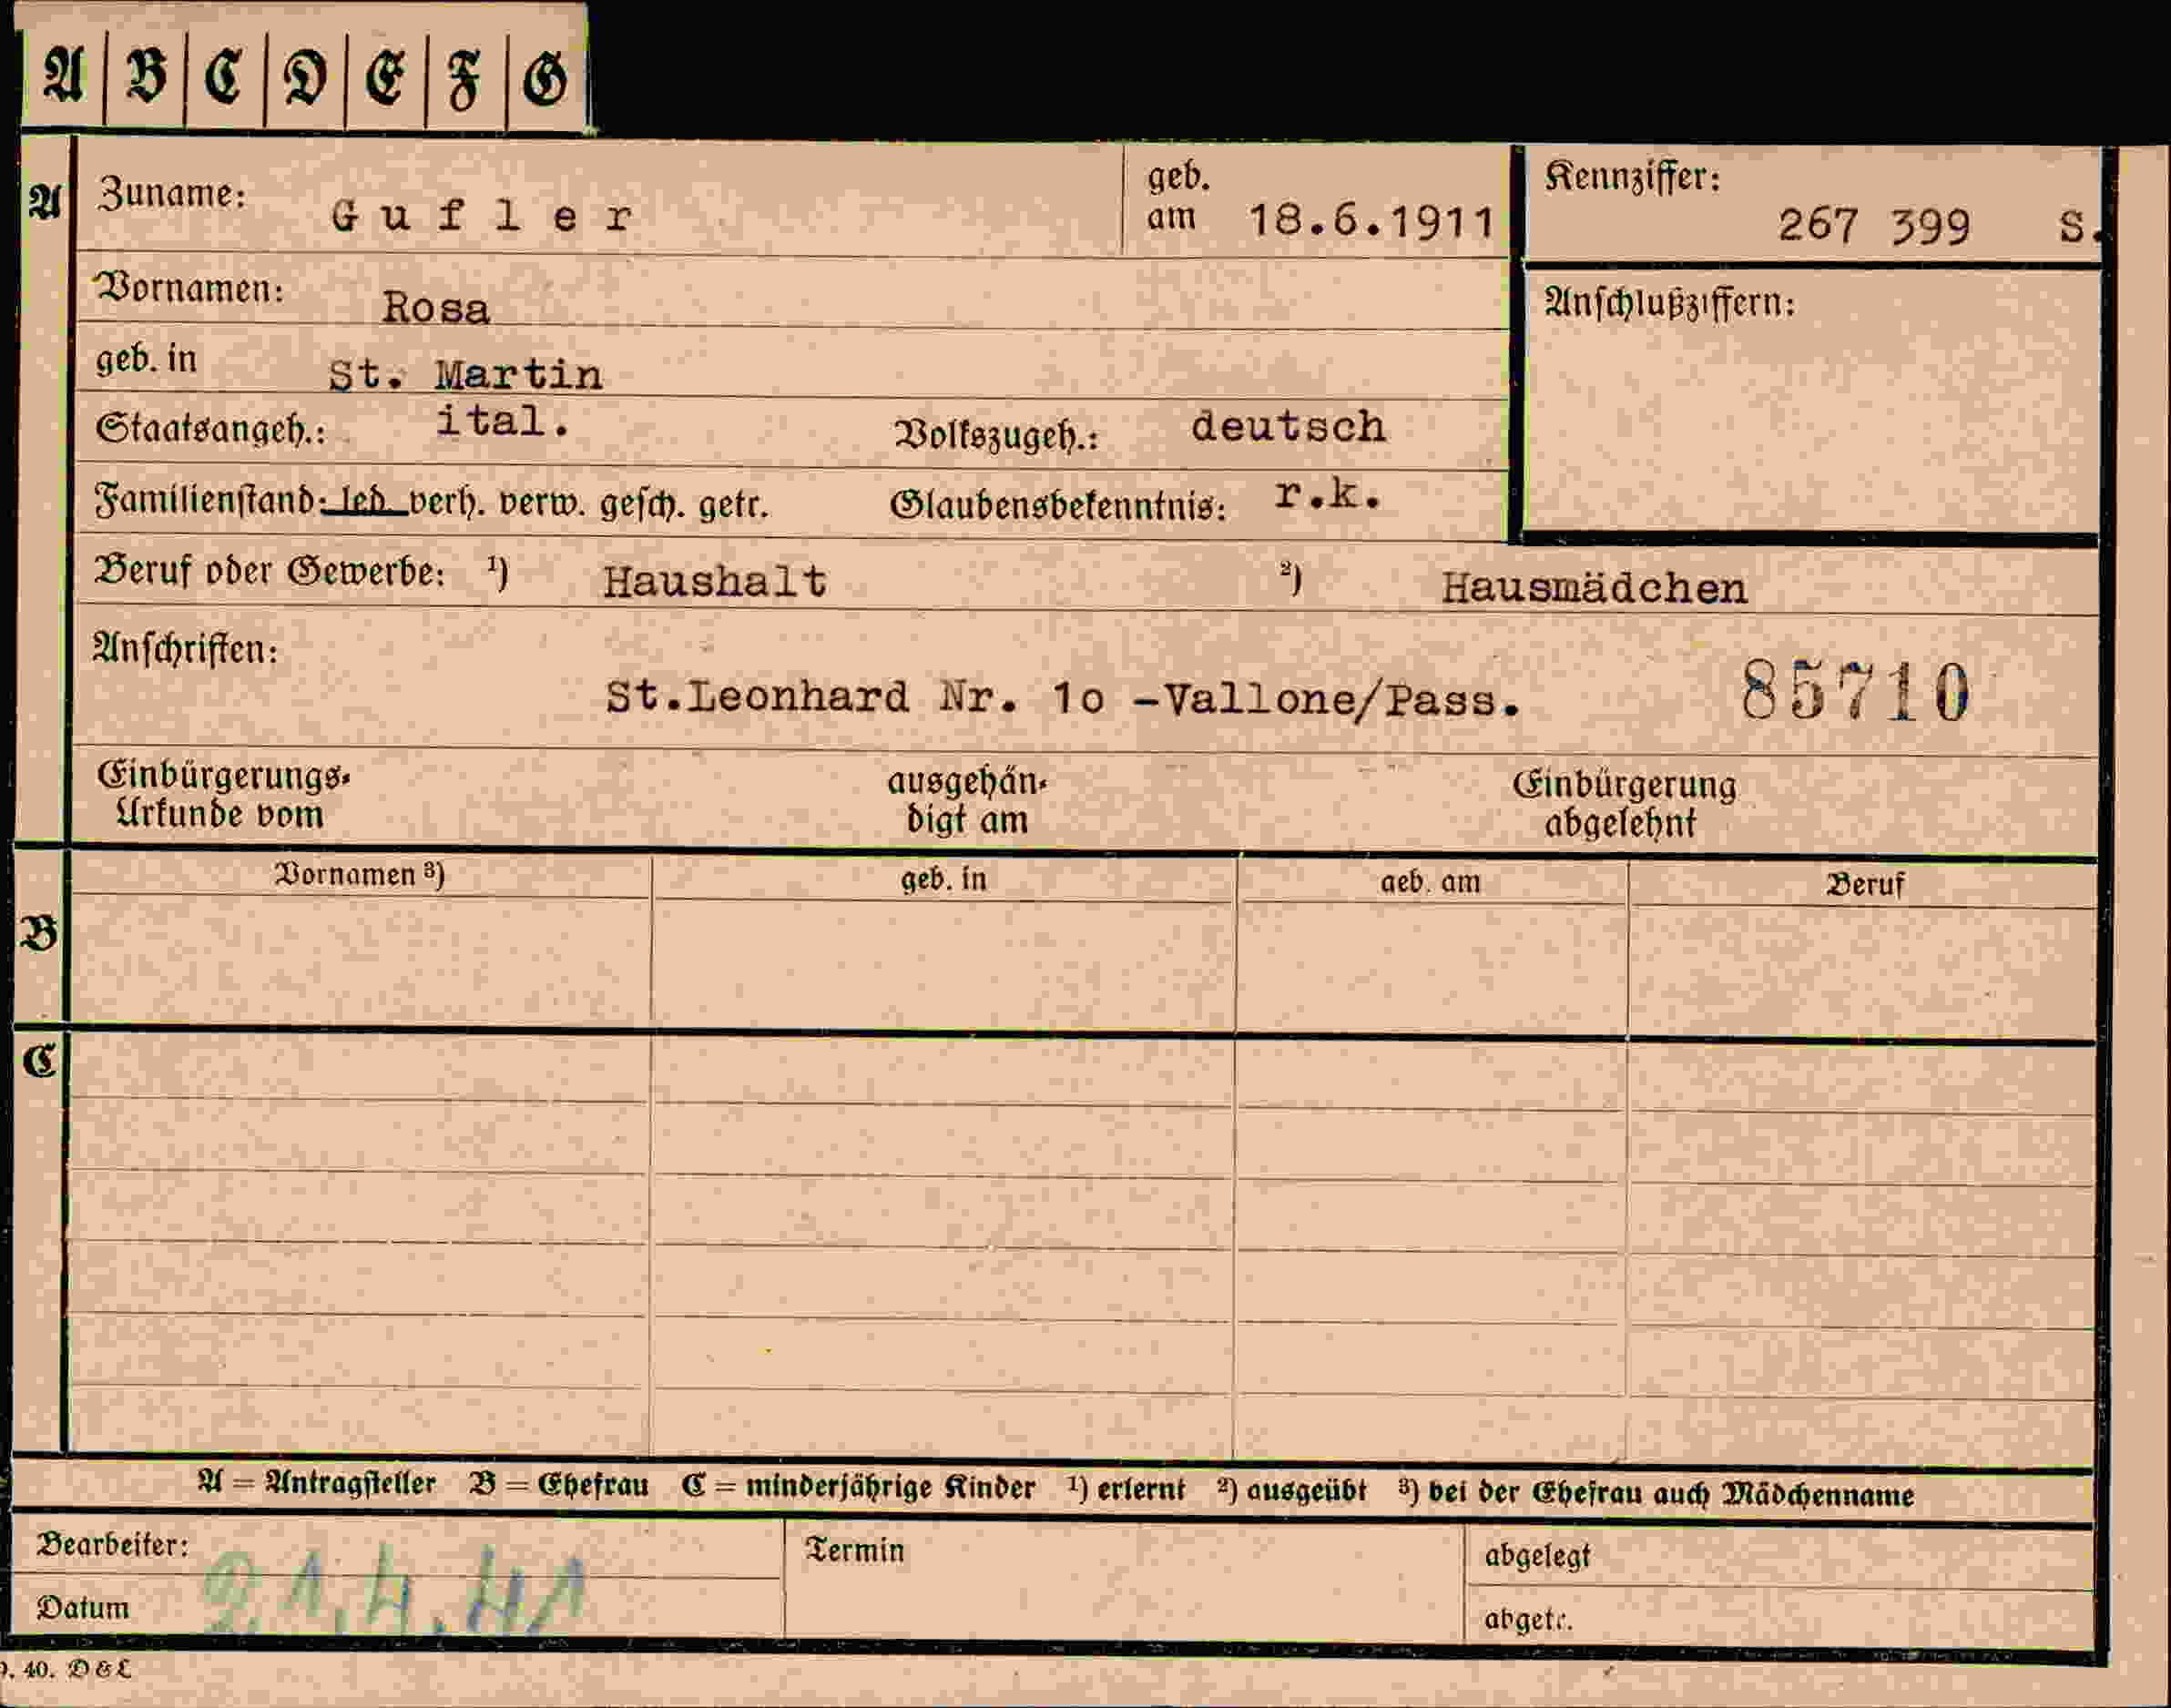 A B C D E F G
A Zuname: Gufler geb. am 18.6.1911 Kennziffer: 267 399 S.
Vornamen: Rosa Anschlußziffern:
geb. in St. Martin
Staatsangeh.: ital. Volkszugeh.: deutsch
Familienstand: led. verh. verw. gesch. getr. Glaubensbekenntnis: r.k.
Beruf oder Gewerbe: ¹) Haushalt ²) Hausmädchen
Anschriften:
St.Leonhard Nr. 1o -Vallone/Pass. 85710
Einbürgerungs- ausgehän- Einbürgerung
Urkunde vom digt am abgelehnt
Vornamen ³) geb. in geb. am Beruf
B
C
A = Antragsteller B = Ehefrau C = minderjährige Kinder ¹) erlernt ²) ausgeübt ³) bei der Ehefrau auch Mädchenname
Bearbeiter: Termin abgelegt
Datum 21.4.41 abgetr.
40. D & L